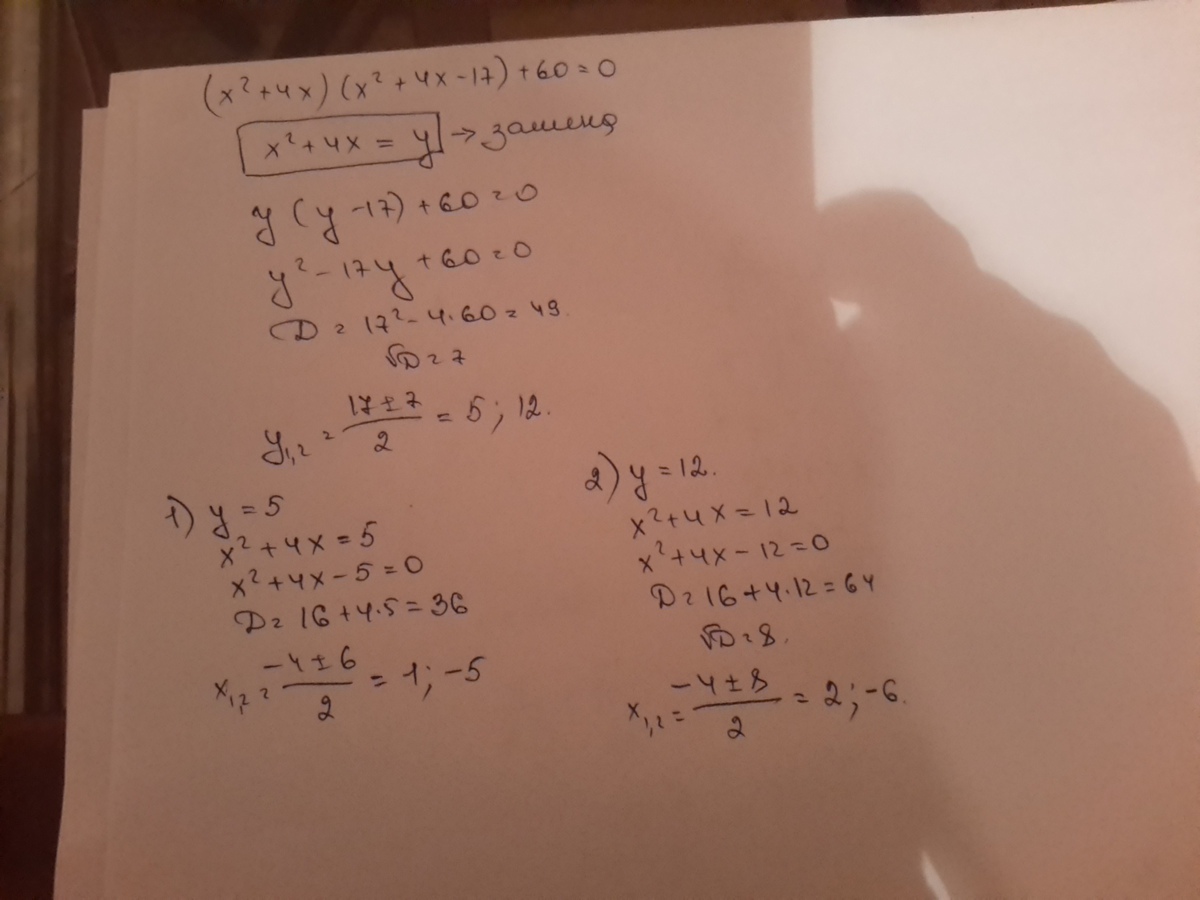 (x²+4x)(x²+4x-17)+60=0
x²+4x = y → замена
y(y-17)+60=0
y²-17y+60=0
D = 17²-4·60=49.
√D=7
y₁,₂ = (17±7)/2 = 5; 12.
1) y=5
x²+4x=5
x²+4x-5=0
D=16+4·5=36
x₁,₂ = (-4±6)/2 = 1; -5
2) y=12.
x²+4x=12
x²+4x-12=0
D=16+4·12=64
√D=8.
x₁,₂ = (-4±8)/2 = 2; -6.